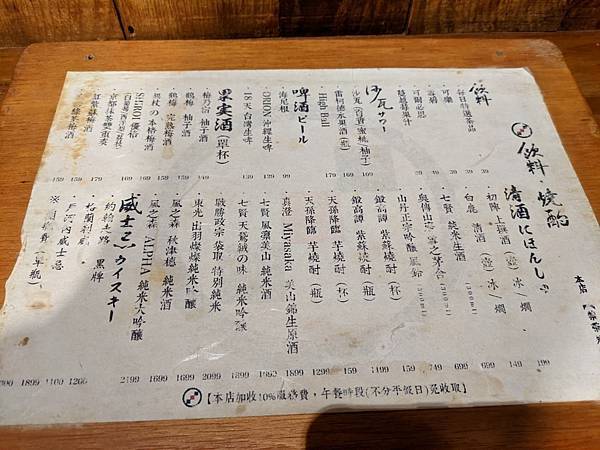 飲料、燒酌
清酒にほんしゅ
飲料
每日特選茶品 39
可樂 39
雪菊 39
可爾必思 39
蔓越莓果汁
沙瓦サワー
沙瓦(百香 蜜桃 柚子) 109
雷柯德水果酒(瓶) 169
High Ball 179
啤酒ビール
海尼根 99
ORION沖繩生啤 129
18天台灣生啤 139
果実酒(單杯)
梅乃宿 柚子酒 149
鶴梅 柚子酒 159
鶴梅 完熟梅酒 159
鳳杖の本格梅酒 159
SHIROI優格
京都抹茶雙重奏
紅紫蘇梅酒 179
綠茶梅酒 159
初陣上撰酒(壺)冰/燗 199
白鹿 清酒(壺)冰/燗 149
七賢 純米生酒 699
奧傳山形 雪之茅舍 699
山丹正宗吟釀 風鈴 749
鍛高譚 紫蘇燒酎(杯) 159
鍛高譚 紫蘇燒酎(瓶) 1499
天孫降臨 芋燒酎(杯) 159
天孫降臨 芋燒酎(瓶) 1299
真澄 Miyasaka 美山錦生原酒 1899
七賢 風凜美山 純米酒
七賢 天鵞絨の味 純米吟釀 1899
戰勝政宗 袋取 特別純米 2099
東光 出羽燦燦純米吟釀 1699
風之森 秋津穗 純米酒 1699
風之森 ALPHA 純米大吟釀 2199
威士忌ウイスキー
約翰走路 黑牌 1200
格蘭利威 1100
戶河內威士忌 1899
【本店加收10%服務費,午餐時段(不分平假日)免收取】